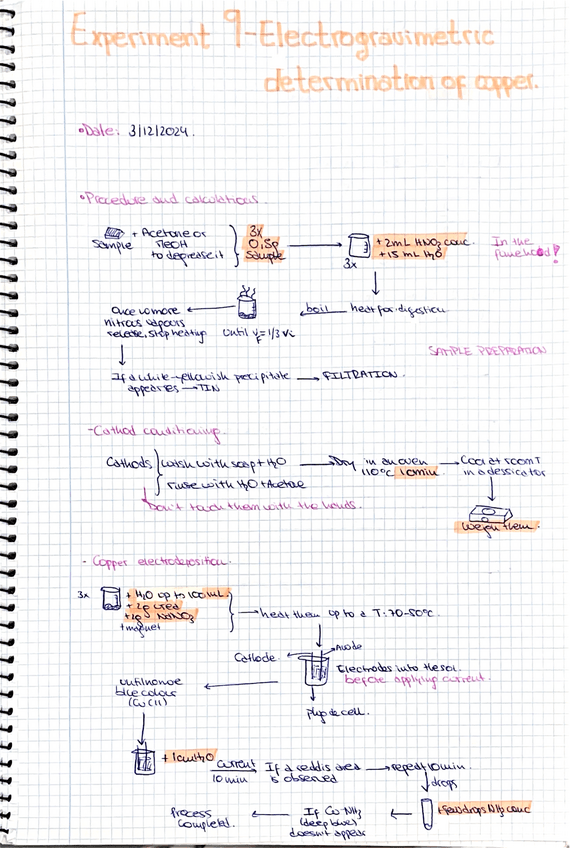 Experiment 9-Electrogravimetric
determination of copper.
•Date: 3/12/2024.
•Procedure and calculations.
Sample
+ Acetone or
MeOH
to degrease it
3x
0,5g
Sample
3x
+2mL HNO3 conc
+15 mL H2O
In the
fumehood!
heat for digestion
boil
until Vf=1/3 Vi
Once no more
nitrous vapours
release, stop heating
SAMPLE PREPARATION
If a white-yellowish precipitate → FILTRATION.
appears → TIN
-Cathod conditioning.
Cathods
wash with soap + H2O
rinse with H2O + Acetone
Dry in an oven
110ºC 10min
Cool at room T
in a dessicator
Don't touch them with the hands.
Weigh them.
- Copper electrodeposition.
3x
+ H2O up to 100mL
+ 2g urea
+1g NaNO3
+magnet
heat them up to a T: 70-80ºC.
Anode
Cathode
Electrodes into the sol.
before applying current.
Plug de cell.
until no more
blue colour
(Cu(II))
+ 1cm H2O
Current
10 min
If a reddis area
is observed
→ repeat 10min.
drops
+few drops NH3 conc
If Cu-NH3
(deep blue)
doesn't appear
Process
Completed.